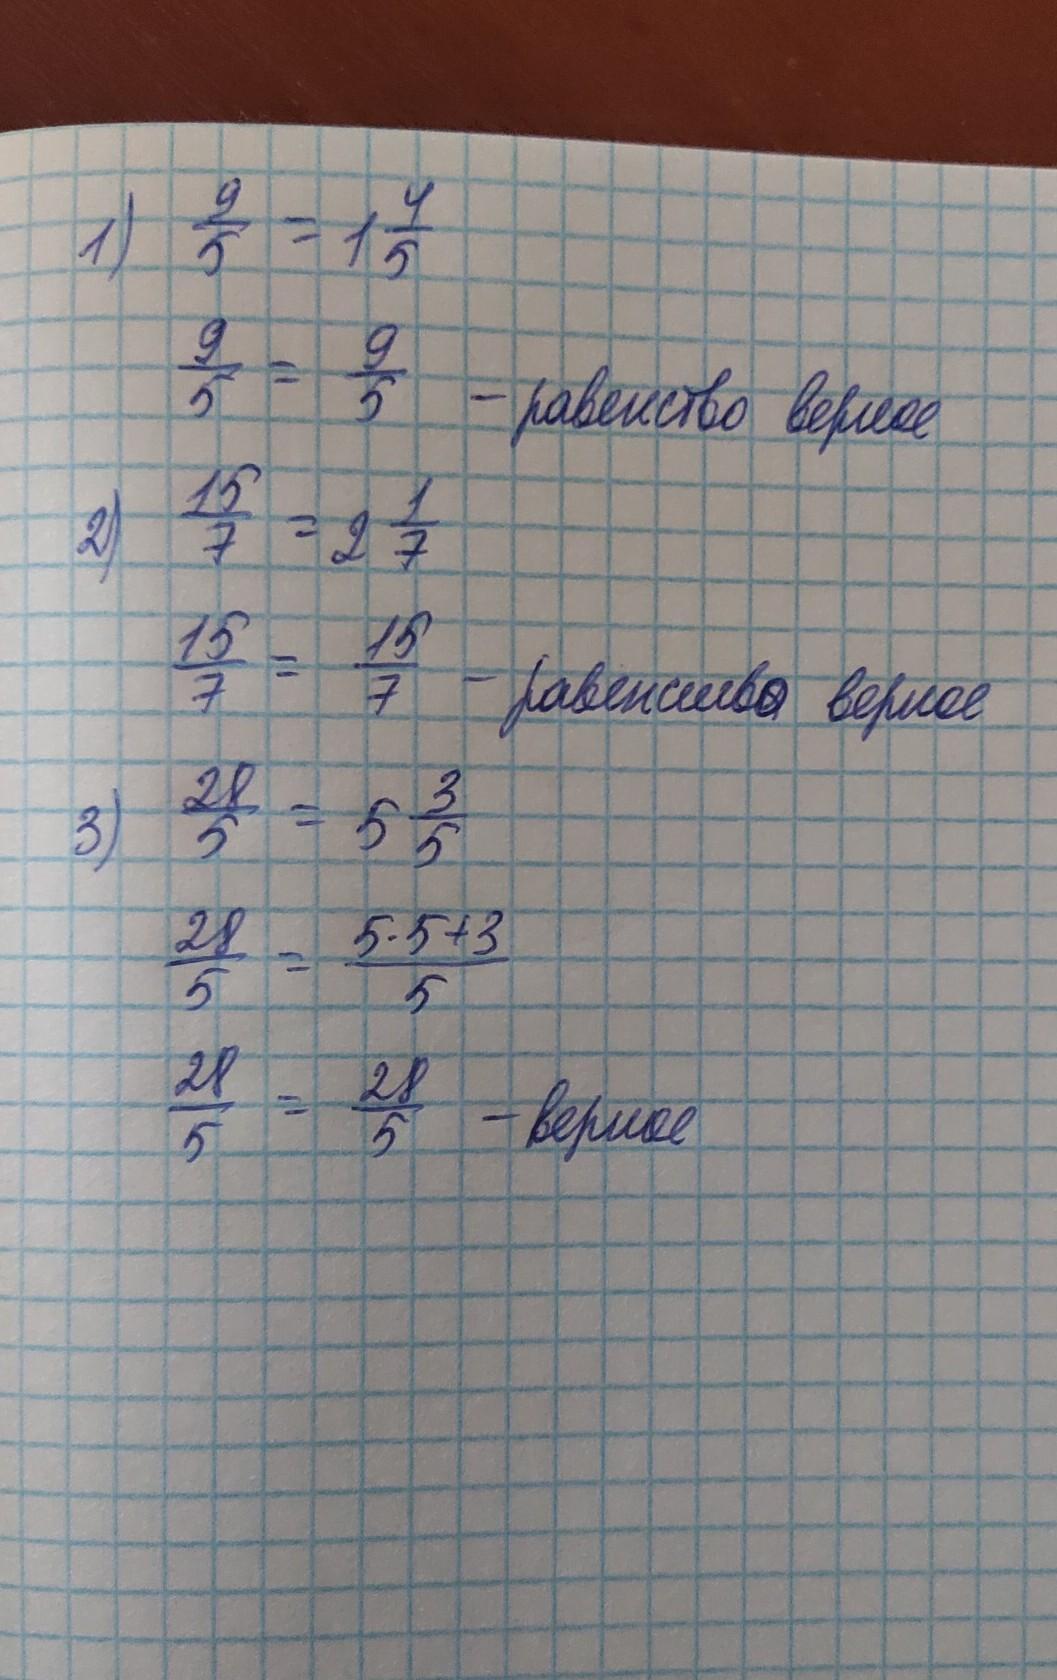 1) 9/5 = 1 4/5
9/5 = 9/5 – равенство верное
2) 15/7 = 2 1/7
15/7 = 15/7 – равенство верное
3) 28/5 = 5 3/5
28/5 = (5·5+3)/5
28/5 = 28/5 – верное